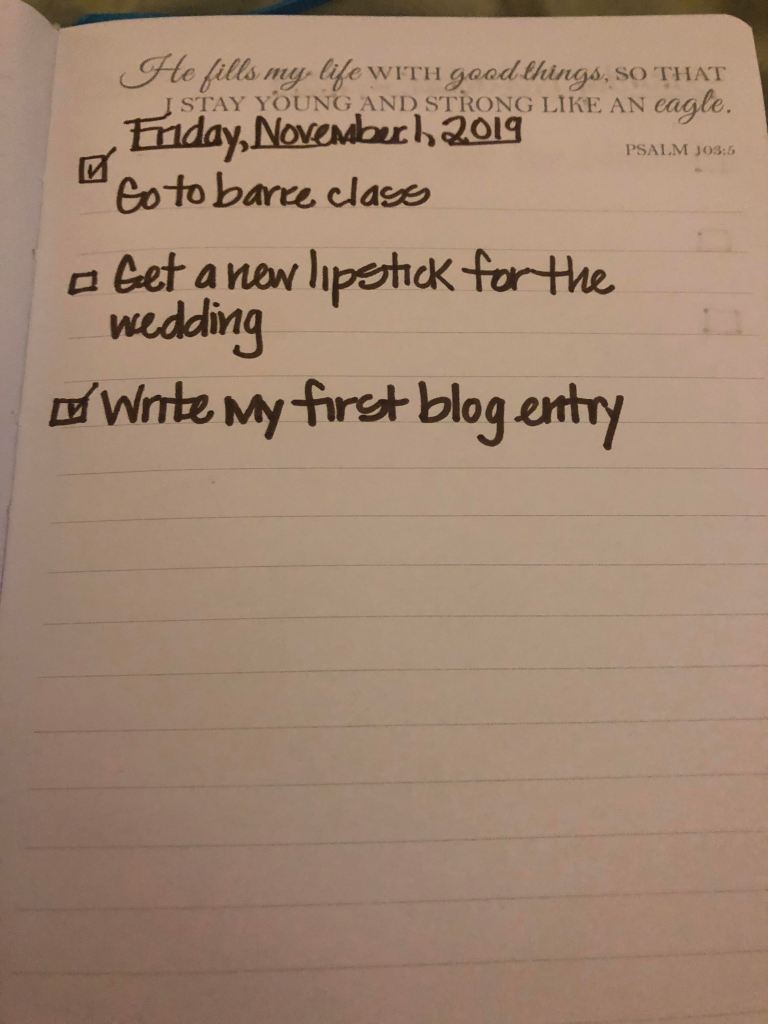 He fills my life WITH good things, SO THAT
I STAY YOUNG AND STRONG LIKE AN eagle.
Friday, November 1, 2019
PSALM 103:5
Go to barre class
Get a new lipstick for the
wedding
Write my first blog entry